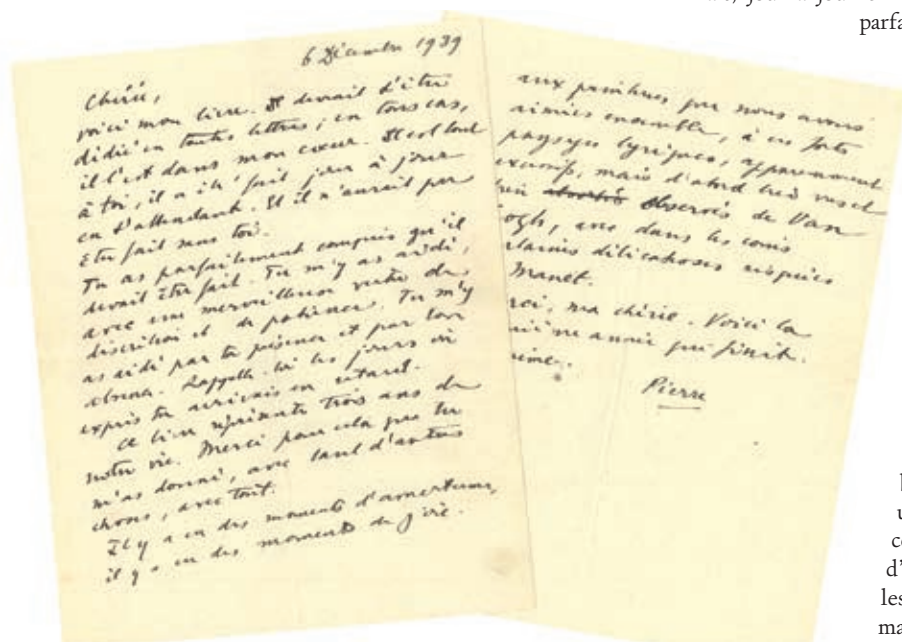 parfa
6 Décembre 1939
Chérie,
voici mon livre. Il devrait d'être
dédié en toutes lettres ; en tous cas,
il l'est dans mon cœur. Il est tout
à toi, il a été fait jour à jour
en t'attendant. Et il n'aurait pas
été fait sans toi.
Tu as parfaitement compris qu'il
devait être fait. Tu m'y as aidé,
avec une merveilleuse vertu de
discrétion et de patience. Tu m'y
as aidé par ta présence et par ton
absence. Rappelle-toi les jours où
exprès tu arrivais en retard.
Ce livre représente trois ans de
notre vie. Merci pour cela que tu
m'as donné, avec tant d'autres
choses, avec tout.
Il y a eu des moments d'amertume,
il y a eu des moments de joie.
aux peintures que nous avons
aimées ensemble, à ces
paysages lyriques, apparemment
excessifs, mais d'abord très
observés de Van
ogh, avec dans les coins
délicatesses
Manet.
rci, ma chérie. Voici la
année qui finit.
aime.
Pierre
u
c
d'
les
ma